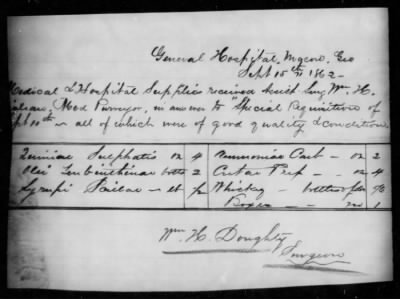 General Hospital, Macon, Geo
Sept 15th 1862-
Medical & Hospital Supplies received Surg Wm. H.
Med Purveyor, in answer to "Special Requisition of
Sept 10th" - all of which were of good quality & condition
Quiniae Sulphatis oz 4 Ammoniae Carb - oz 2
Olei Terebinthinae bottle 2 Cretae Prep - oz 4
Syrupi Scillae - Whiskey - bottles
Boxes - - no 1
Wm. H. Doughty
Surgeon